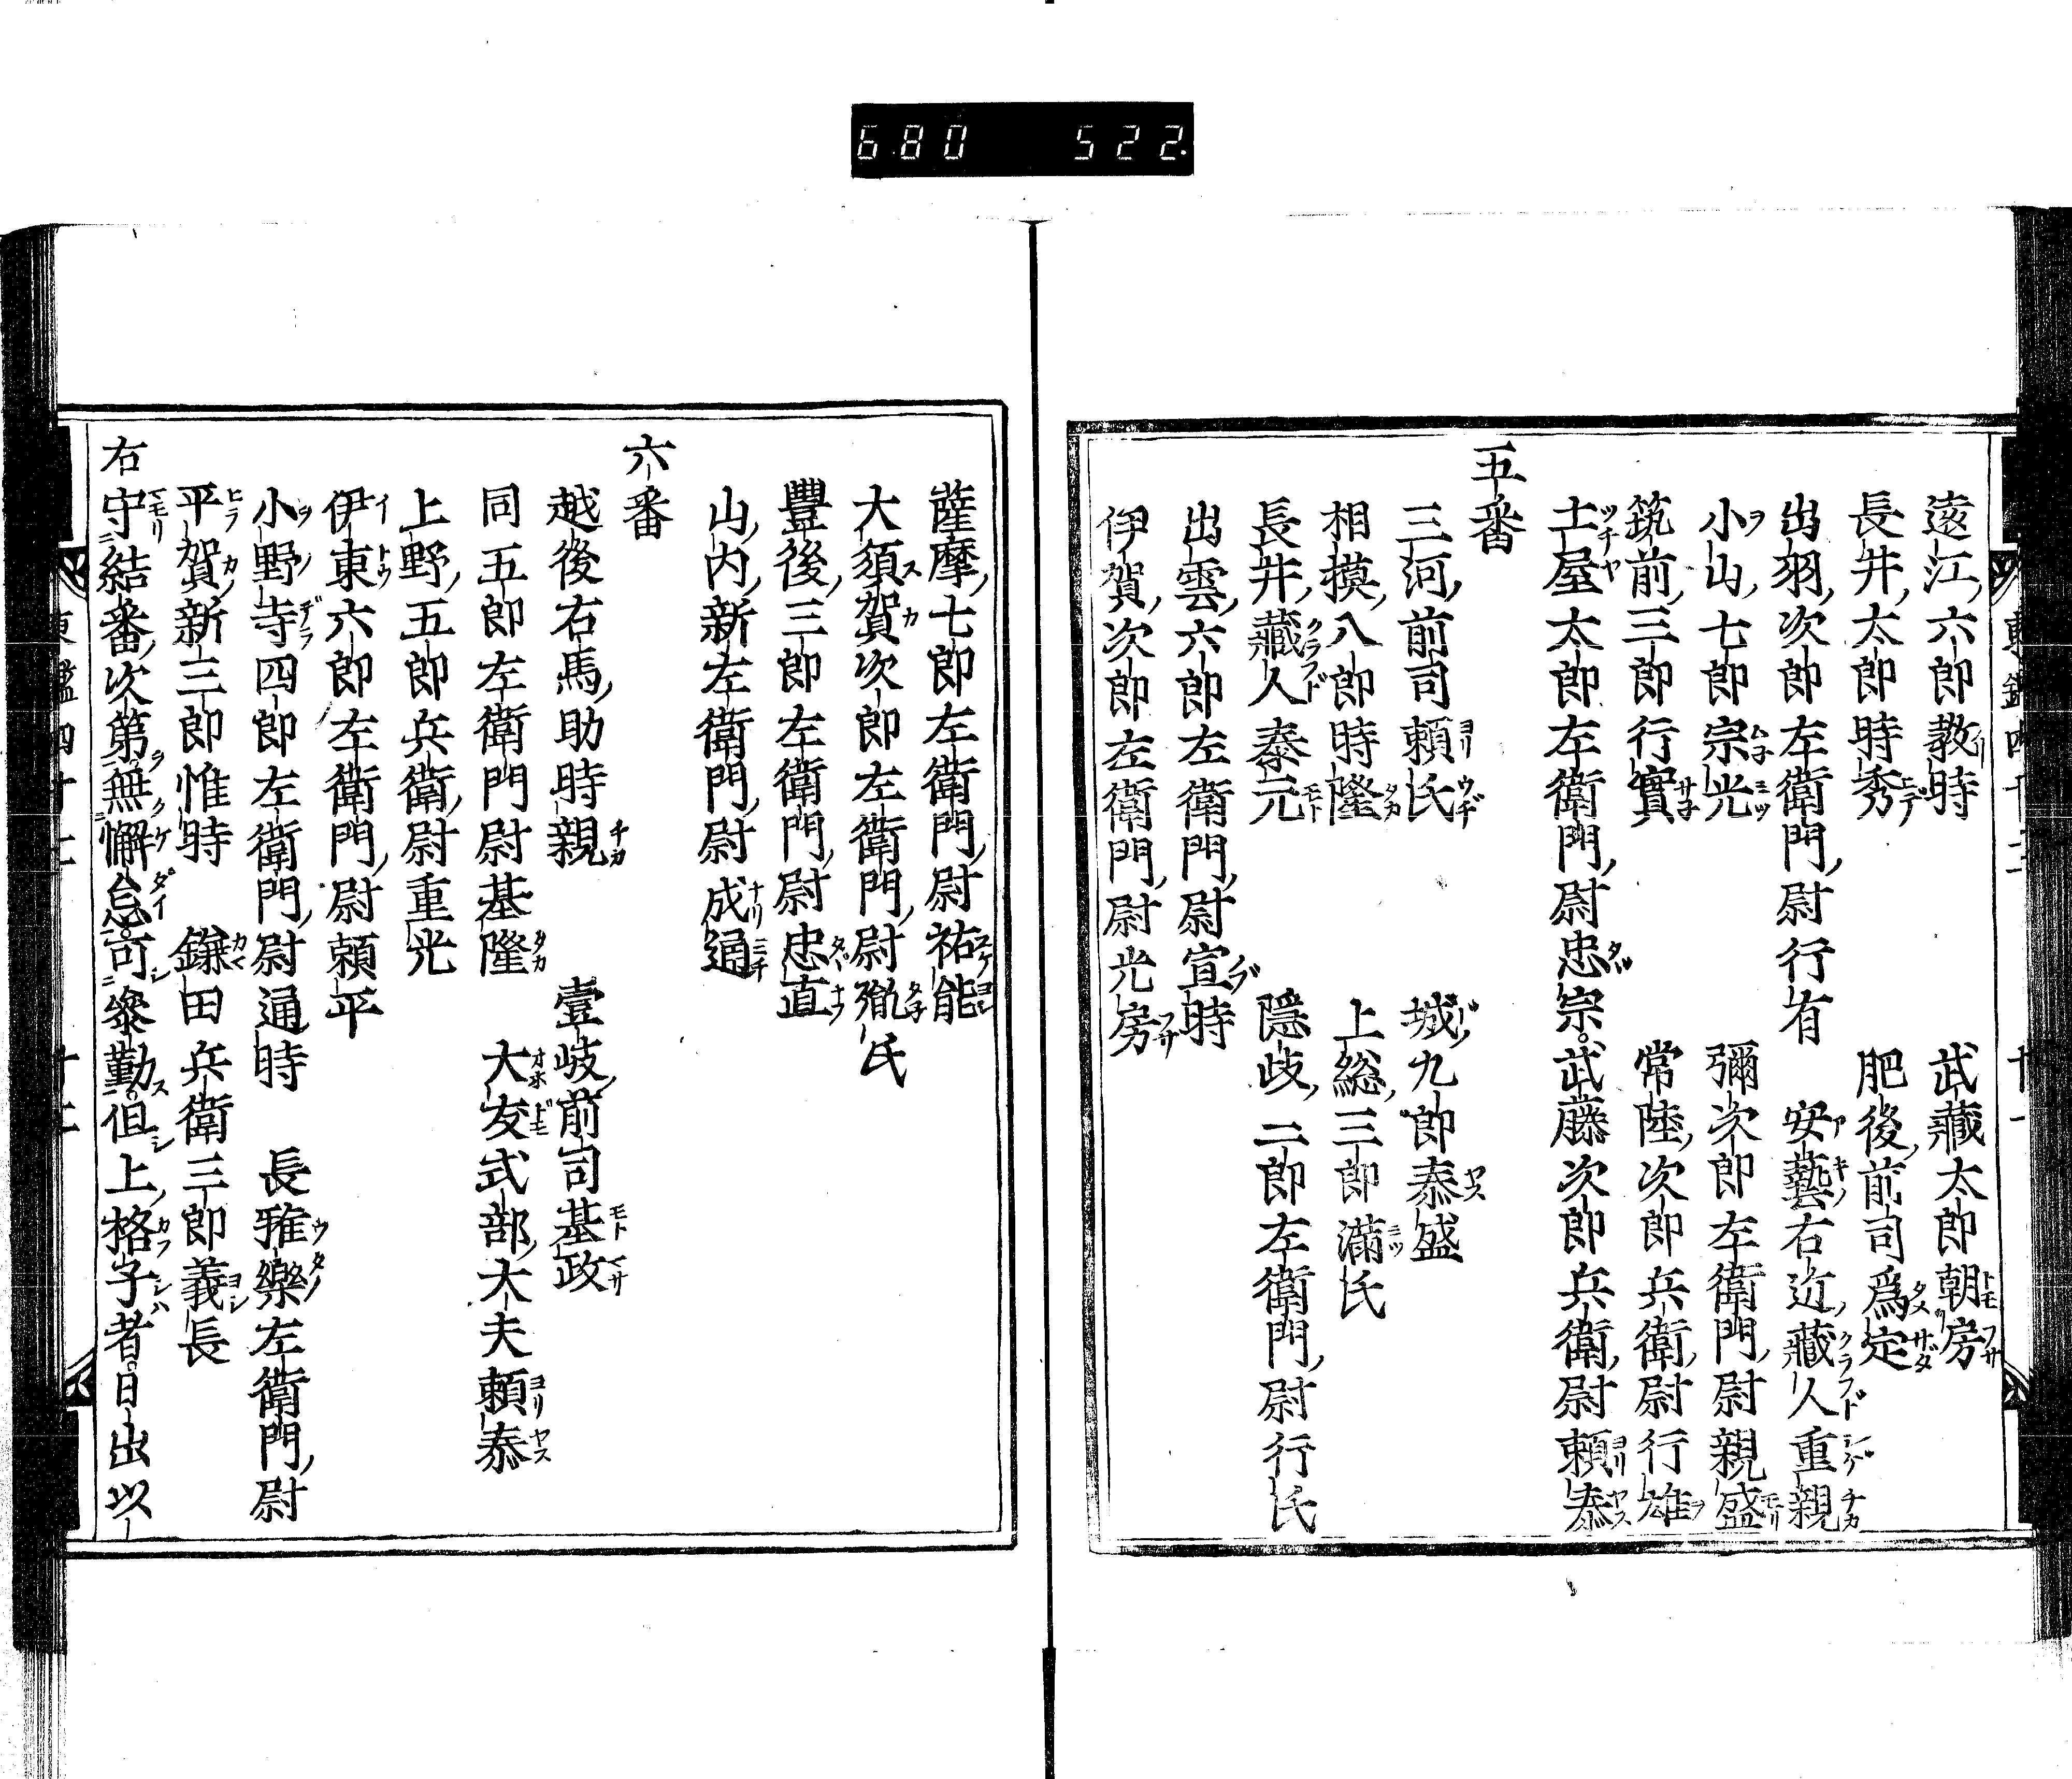 680 522
遠江六郎教時 武藏太郎朝房
長井太郎時秀 肥後前司爲定
出羽次郎左衛門尉行有 安藝右近藏人重親
小山七郎宗光 彌次郎左衛門尉親盛
筑前三郎行實 常陸次郎兵衛尉行雄
土屋太郎左衛門尉忠宗。武藤次郎兵衛尉頼泰
五番
三河前司頼氏 城九郎泰盛
相摸八郎時隆 上総三郎滿氏
長井藏人泰元 隠岐二郎左衛門尉行氏
出雲六郎左衛門尉宣時
伊賀次郎左衛門尉光房
薩摩七郎左衛門尉祐能
大須賀次郎左衛門尉胤氏
豊後三郎左衛門尉忠直
山内新左衛門尉成通
六番
越後右馬助時親 壹岐前司基政
同五郎左衛門尉基隆 大友式部大夫頼泰
上野五郎兵衛尉重光
伊東六郎左衛門尉頼平
小野寺四郎左衛門尉通時 長雅樂左衛門尉
平賀新三郎惟時 鎌田兵衛三郎義長
右守結番次第無懈怠。可參勤。但上格子者。日出以